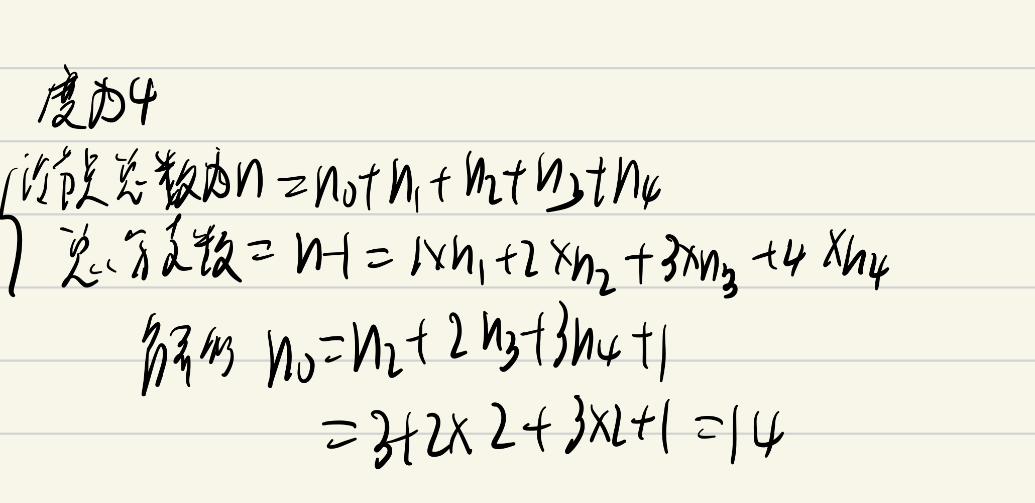 度为4
设节点总数为n=n₀+n₁+n₂+n₃+n₄
总分支数=n-1=1×n₁+2×n₂+3×n₃+4×n₄
解得 n₀=n₂+2n₃+3n₄+1
=3+2×2+3×2+1=14